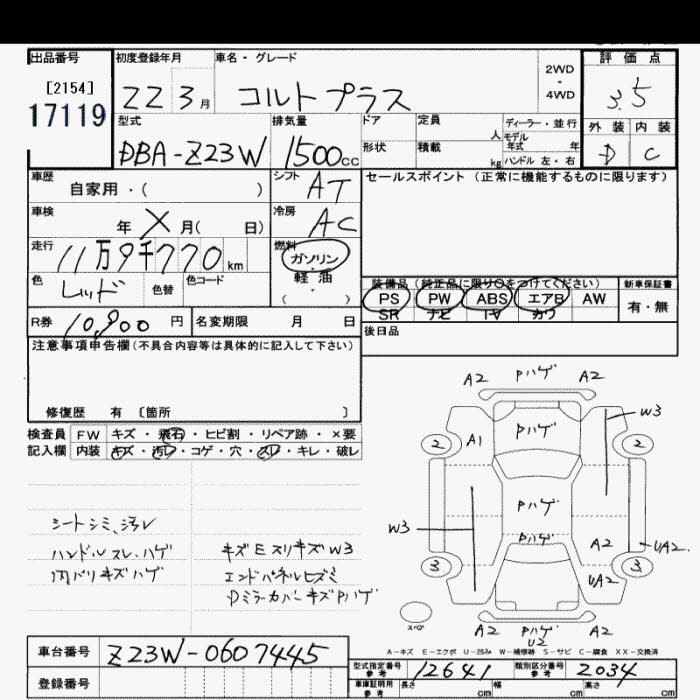 出品番号
[2154]
17119
初度登録年月
22 3月
車名・グレード
コルトプラス
2WD
・
4WD
評価点
3.5
外装 内装
D C
型式
DBA-Z23W
排気量
1500cc
ドア
形状
定員
人
積載
kg
ディーラー・並行
モデル
年式 年
ハンドル 左・右
車歴
自家用・( )
シフト
AT
セールスポイント (正常に機能するものに限ります)
車検
年 X 月( 日)
冷房
AC
走行
11万9千770km
燃料
ガソリン
軽油
( )
色
レッド
色替
色コード
装備品 (純正品に限り○をつけてください)
新車保証書
PS PW ABS エアB AW
SR ナビ TV カワ
有・無
R券 10,900 円
名変期限 月 日
後日品
注意事項申告欄(不具合内容等は具体的に記入して下さい)
修復歴 有 〔箇所 〕
検査員 FW キズ・飛石・ヒビ割・リペア跡・×要
記入欄 内装 キズ・汚レ・コゲ・穴・スレ・キレ・破レ
シートシミ、汚レ
ハンドルスレ、ハゲ
内バリキズハゲ
キズEスリキズW3
エンドパネルヒズミ
Dミラーカバーキズ Pハゲ
A2 Pハゲ A2
W3
A1 Pハゲ
2 2
Pハゲ
W3 Pハゲ A2
UA2
3 UA2 3
スペア
A2 Pハゲ A2
U2
A-キズ E-エクボ U-凹み W-補修跡 S-サビ C-腐食 XX-交換済
車台番号 Z23W-0607445
型式指定番号
参考
12641
類別区分番号
参考
2034
登録番号
車庫証明用
参考
長さ cm 幅 cm 高さ cm